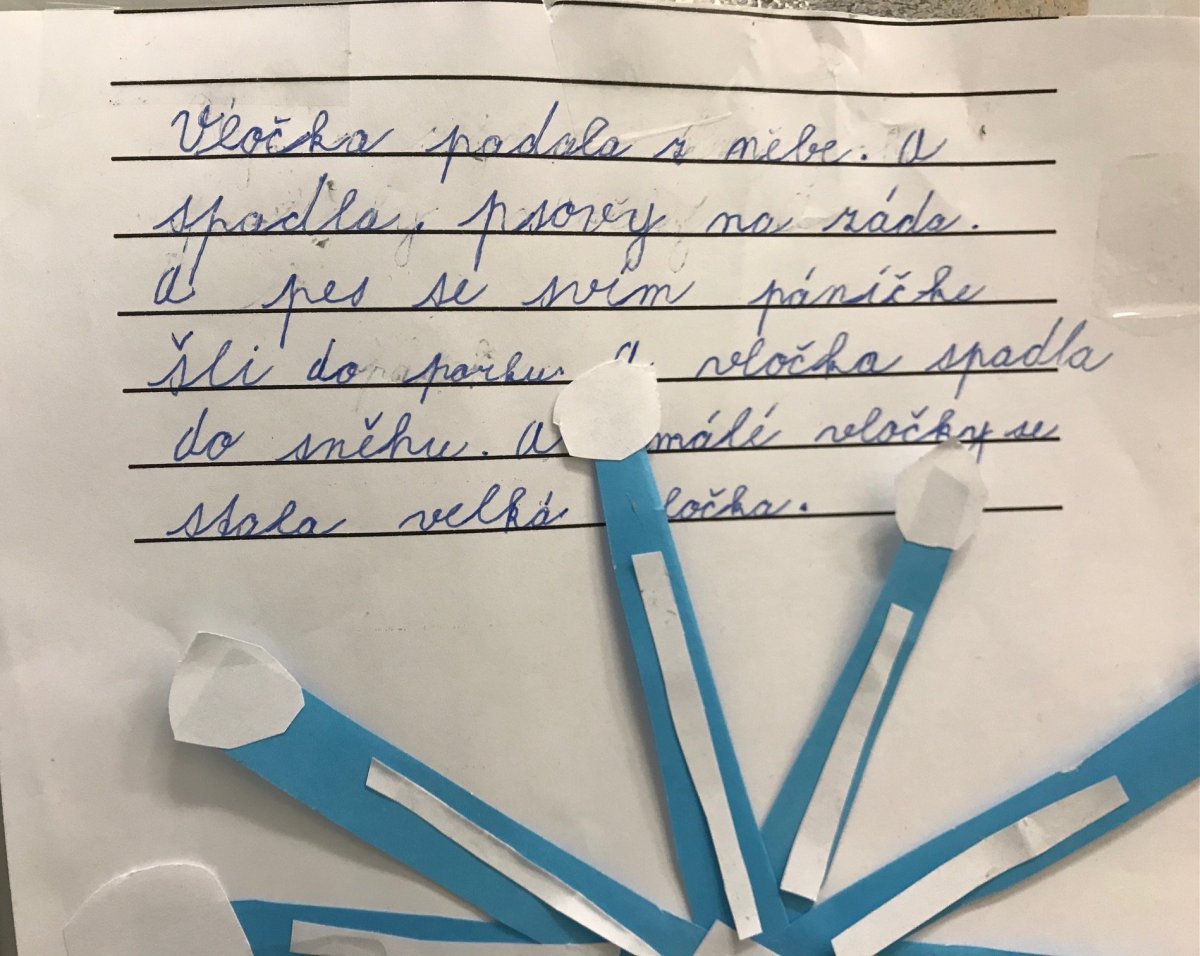 Vločka padala z něbe. a
spadla, psovy na záda.
a pes se svím páníčke
šli do parku. a vločka spadla
do sněhu. a málé vločky se
stala velká ločka.